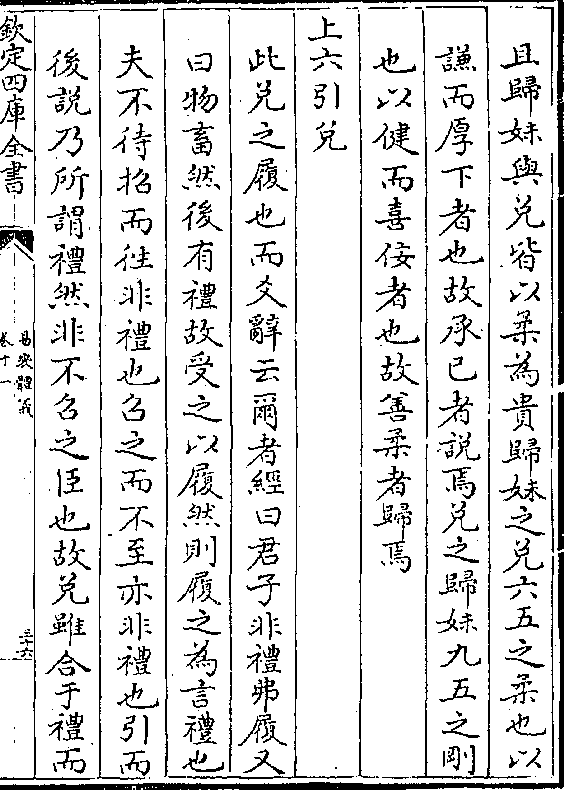 且歸妹與兌皆以柔為貴歸妹之兌六五之柔也以
謙而厚下者也故承已者說焉兌之歸妹九五之剛
也以健而喜佞者也故善柔者歸焉
上六引兌
此兌之履也而爻辭云爾者經曰君子非禮弗履又
曰物畜然後有禮故受之以履然則履之為言禮也
夫不待招而往非禮也召之而不至亦非禮也引而
後說乃所謂禮然非不召之臣也故兌雖合于禮而
欽定四庫全書
易變體義
卷十一
三十六